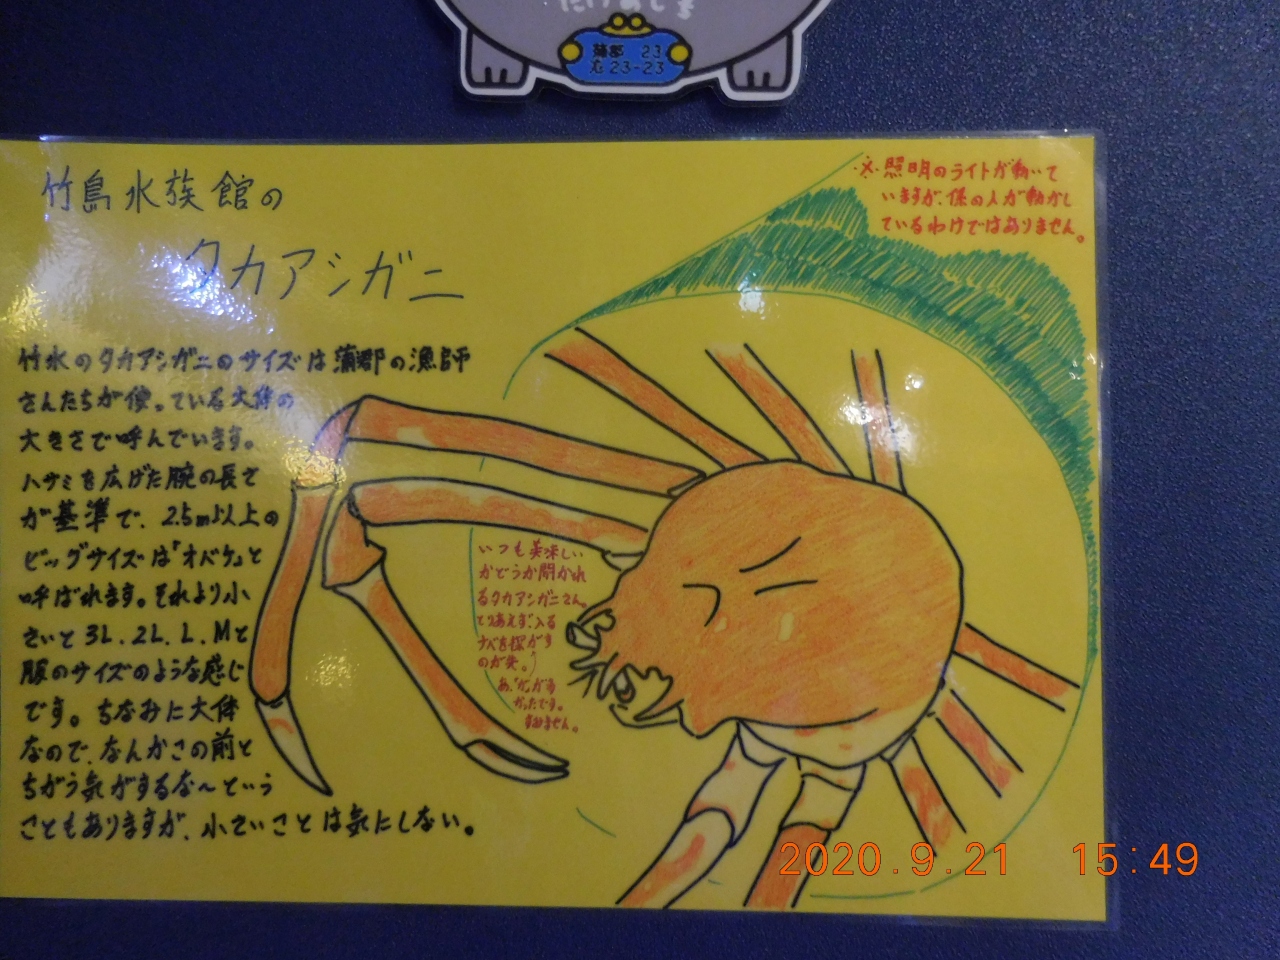 たけあしま
蒲郡 23
な23-23
竹島水族館の
タカアシガニ
※照明のライトが動いて
いますが、係の人が動かし
ているわけではありません。
竹水のタカアシガニのサイズは蒲郡の漁師
さんたちが使っている大体の
大きさで呼んでいます。
ハサミを広げた腕の長さ
が基準で、2.5m以上の
ビッグサイズは「オバケ」と
呼ばれます。それより小
さいと3L.2L.L.Mと
服のサイズのような感じ
です。ちなみに大体
なので、なんかこの前と
ちがう気がするな～という
こともありますが、小さいことは気にしない。
いつも美味しい
かどうか聞かれ
るタカアシガニさん。
とりあえず、入る
ナベを探がす
のが先。
あ、「が」が多
かったです。
すみません。
2020.9.21 15:49